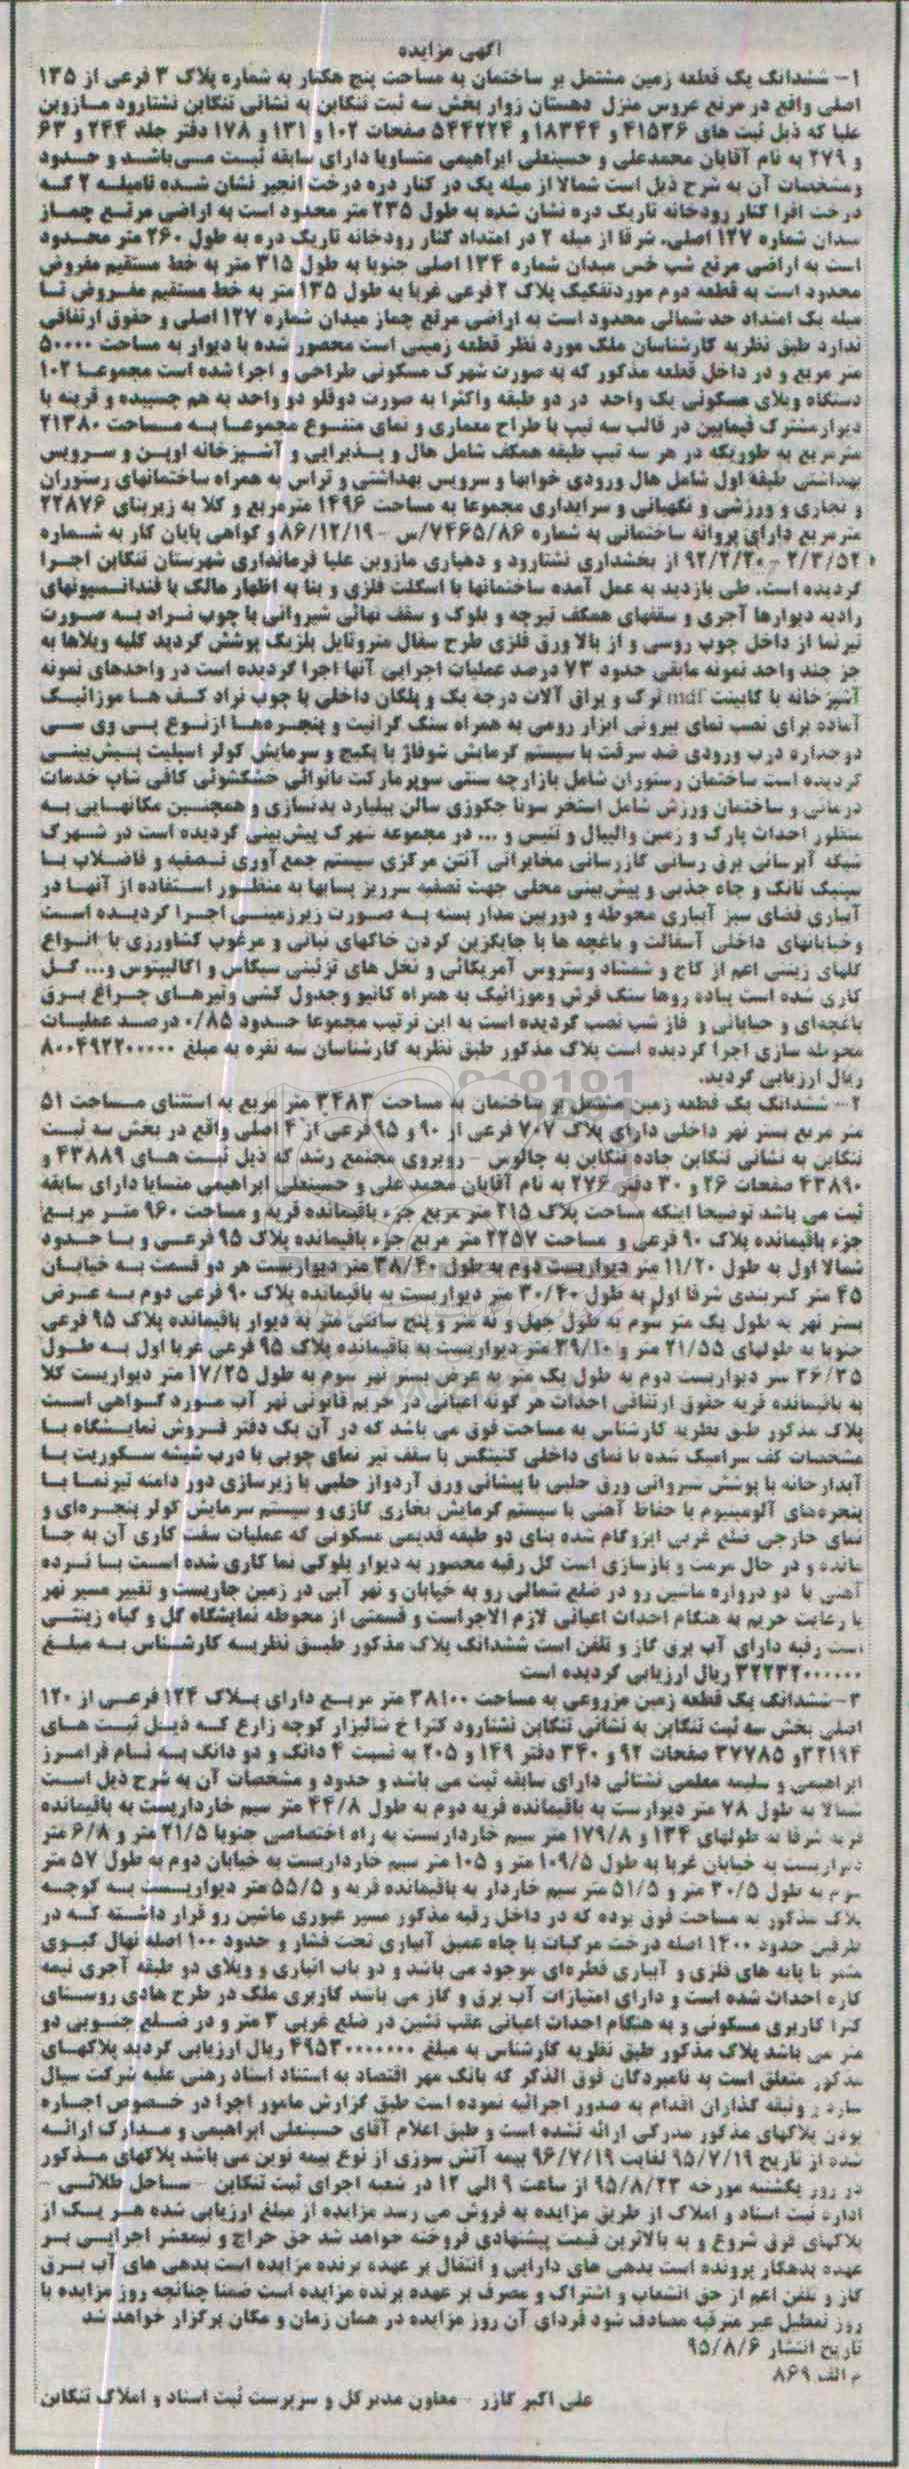 آگهی مزایده
۱- ششدانگ یک قطعه زمین مشتمل بر ساختمان به مساحت پنج هکتار به شماره پلاک ۳ فرعی از ۱۳۵
اصلی واقع در مرتع عروس منزل دهستان زوار بخش سه ثبت تنکابن به نشانی تنکابن نشتارود مازوبن
علیا که ذیل ثبت های ۴۱۵۳۶ و ۱۸۳۴۴ و ۵۴۴۲۲۴ صفحات ۱۰۲ و ۱۳۱ و ۱۷۸ دفتر جلد ۲۴۴ و ۶۳
و ۲۷۹ به نام آقایان محمدعلی و حسینعلی ابراهیمی متساویا دارای سابقه ثبت می‌باشد و حدود
و مشخصات آن به شرح ذیل است شمالا از میله یک در کنار دره درخت انجیر نشان شده تامیله ۲ که
درخت افرا کنار رودخانه تاریک دره نشان شده به طول ۲۳۵ متر محدود است به اراضی مرتع چماز
میدان شماره ۱۲۷ اصلی. شرقا از میله ۲ در امتداد کنار رودخانه تاریک دره به طول ۲۶۰ متر محدود
است به اراضی مرتع شب خس میدان شماره ۱۳۴ اصلی جنوبا به طول ۳۱۵ متر به خط مستقیم مفروض
محدود است به قطعه دوم موردتفکیک پلاک ۲ فرعی غربا به طول ۱۳۵ متر به خط مستقیم مفروض تا
میله یک امتداد حد شمالی محدود است به اراضی مرتع چماز میدان شماره ۱۲۷ اصلی و حقوق ارتفاقی
ندارد طبق نظریه کارشناسان ملک مورد نظر قطعه زمینی است محصور شده با دیوار به مساحت ۵۰۰۰۰
متر مربع و در داخل قطعه مذکور که به صورت شهرک مسکونی طراحی و اجرا شده است مجموعا ۱۰۲
دستگاه ویلای مسکونی یک واحد در دو طبقه واکثرا به صورت دوقلو دو واحد به هم چسبیده و قرینه با
دیوارمشترک فیمابین در قالب سه تیپ با طراح معماری و نمای متنوع مجموعا به مساحت ۲۱۳۸۰
مترمربع به طوریکه در هر سه تیپ طبقه همکف شامل هال و پذیرایی و آشپزخانه اوپن و سرویس
بهداشتی طبقه اول شامل هال ورودی خوابها و سرویس بهداشتی و تراس به همراه ساختمانهای رستوران
و تجاری و ورزشی و نگهبانی و سرایداری مجموعا به مساحت ۱۴۹۶ مترمربع و کلا به زیربنای ۲۲۸۷۶
مترمربع دارای پروانه ساختمانی به شماره ۷۴۶۵/۸۶/س - ۸۶/۱۲/۱۹ و گواهی پایان کار به شماره
۲/۳/۵۲ - ۹۲/۲/۲۰ از بخشداری نشتارود و دهیاری مازوبن علیا فرمانداری شهرستان تنکابن اجرا
گردیده است. طی بازدید به عمل آمده ساختمانها با اسکلت فلزی و بنا به اظهار مالک با فنداسیونهای
رادیه دیوارها آجری و سقفهای همکف تیرچه و بلوک و سقف نهائی شیروانی با چوب نراد به صورت
تیرنما از داخل چوب روسی و از بالا ورق فلزی طرح سفال متروتایل بلژیک پوشش گردید کلیه ویلاها به
جز چند واحد نمونه مابقی حدود ۷۳ درصد عملیات اجرایی آنها اجرا گردیده است در واحدهای نمونه
آشپزخانه با کابینت mdf ترک و یراق آلات درجه یک و پلکان داخلی با چوب نراد کف ها موزائیک
آماده برای نصب نمای بیرونی ابزار رومی به همراه سنگ گرانیت و پنجره‌ها ازنوع پی وی سی
دوجداره درب ورودی ضد سرقت با سیستم گرمایش شوفاژ با پکیج و سرمایش کولر اسپلیت پیش‌بینی
گردیده است ساختمان رستوران شامل بازارچه سنتی سوپرمارکت نانوائی خشکشوئی کافی شاپ خدمات
درمانی و ساختمان ورزش شامل استخر سونا جکوزی سالن بیلیارد بدنسازی و همچنین مکانهایی به
منظور احداث پارک و زمین والیبال و تنیس و ... در مجموعه شهرک پیش‌بینی گردیده است در شهرک
شبکه آبرسانی برق رسانی گازرسانی مخابراتی آنتن مرکزی سیستم جمع‌آوری تصفیه و فاضلاب با
سپتیک تانک و چاه جذبی و پیش‌بینی محلی جهت تصفیه سرریز پسابها به منظور استفاده از آنها در
آبیاری فضای سبز آبیاری محوطه و دوربین مدار بسته به صورت زیرزمینی اجرا گردیده است
وخیابانهای داخلی آسفالت و باغچه ها با جایگزین کردن خاکهای نباتی و مرغوب کشاورزی با انواع
گلهای زینتی اعم از کاج و شمشاد وستروس آمریکائی و نخل های تزئینی سیکاس و اکالیپتوس و... گل
کاری شده است پیاده روها سنگ فرش وموزائیک به همراه کانیو وجدول کشی وتیرهای چراغ برق
باغچه‌ای و خیابانی و فاز شب نصب گردیده است به این ترتیب مجموعا حدود ۰/۸۵ درصد عملیات
محوطه سازی اجرا گردیده است پلاک مذکور طبق نظریه کارشناسان سه نفره به مبلغ ۸۰۰۴۹۲۲۰۰۰۰۰
ریال ارزیابی گردید.
۲- ششدانگ یک قطعه زمین مشتمل بر ساختمان به مساحت ۳۴۸۳ متر مربع به استثنای مساحت ۵۱
متر مربع بستر نهر داخلی دارای پلاک ۷۰۷ فرعی از ۹۰ و ۹۵ فرعی از ۴ اصلی واقع در بخش سه ثبت
تنکابن به نشانی تنکابن جاده تنکابن به چالوس - روبروی مجتمع رشد که ذیل ثبت های ۴۳۸۸۹ و
۴۳۸۹۰ صفحات ۲۶ و ۳۰ دفتر ۲۷۶ به نام آقایان محمد علی و حسینعلی ابراهیمی متسایا دارای سابقه
ثبت می باشد توضیحا اینکه مساحت پلاک ۲۱۵ متر مربع جزء باقیمانده قریه و مساحت ۹۶۰ متر مربع
جزء باقیمانده پلاک ۹۰ فرعی و مساحت ۲۲۵۷ متر مربع جزء باقیمانده پلاک ۹۵ فرعی و با حدود
شمالا اول به طول ۱۱/۲۰ متر دیواریست دوم به طول ۳۸/۴۰ متر دیواریست هر دو قسمت به خیابان
۴۵ متر کمربندی شرقا اول به طول ۳۰/۴۰ متر دیواریست به باقیمانده پلاک ۹۰ فرعی دوم به عرض
بستر نهر به طول یک متر سوم به طول چهل و نه متر و پنج سانتی متر به دیوار باقیمانده پلاک ۹۵ فرعی
جنوبا به طولهای ۲۱/۵۵ متر و ۳۹/۱۰ متر دیواریست به باقیمانده پلاک ۹۵ فرعی غربا اول به طول
۳۶/۳۵ متر دیواریست دوم به طول یک متر به عرض بستر نهر سوم به طول ۱۷/۲۵ متر دیواریست کلا
به باقیمانده قریه حقوق ارتفاقی احداث هر گونه اعیانی در حریم قانونی نهر آب مورد گواهی است
پلاک مذکور طبق نظریه کارشناس به مساحت فوق می باشد که در آن یک دفتر فروش نمایشگاه با
مشخصات کف سرامیک شده با نمای داخلی کنیتکس با سقف تیر نمای چوبی با درب شیشه سکوریت با
آبدارخانه با پوشش شیروانی ورق حلبی با پیشانی ورق آردواز حلبی با زیرسازی دور دامنه تیرنما با
پنجره‌های آلومینیوم با حفاظ آهنی با سیستم گرمایش بخاری گازی و سیستم سرمایش کولر پنجره‌ای و
نمای خارجی ضلع غربی ایزوگام شده بنای دو طبقه قدیمی مسکونی که عملیات سفت کاری آن به جا
مانده و در حال مرمت و بازسازی است کل رقبه محصور به دیوار بلوکی نما کاری شده است با نرده
آهنی با دو دروازه ماشین رو در ضلع شمالی رو به خیابان و نهر آبی در زمین جاریست و تغییر مسیر نهر
با رعایت حریم به هنگام احداث اعیانی لازم الاجراست و قسمتی از محوطه نمایشگاه گل و گیاه زینتی
است رقبه دارای آب برق گاز و تلفن است ششدانگ پلاک مذکور طبق نظریه کارشناس به مبلغ
۳۲۲۳۲۰۰۰۰۰۰ ریال ارزیابی گردیده است
۳- ششدانگ یک قطعه زمین مزروعی به مساحت ۳۸۱۰۰ متر مربع دارای پلاک ۱۲۴ فرعی از ۱۲۰
اصلی بخش سه ثبت تنکابن به نشانی تنکابن نشتارود کترا خ شالیزار کوچه زارع که ذیل ثبت های
۳۲۱۹۴و ۳۷۷۸۵ صفحات ۹۲ و ۳۴۰ دفتر ۱۴۹ و ۲۰۵ به نسبت ۴ دانگ و دو دانگ به نام فرامرز
ابراهیمی و سلیمه معلمی نشتائی دارای سابقه ثبت می باشد و حدود و مشخصات آن به شرح ذیل است
شمالا به طول ۷۸ متر دیوارست به باقیمانده قریه دوم به طول ۴۴/۸ متر سیم خارداریست به باقیمانده
قریه شرقا به طولهای ۱۳۴ و ۱۷۹/۸ متر سیم خارداریست به راه اختصاصی جنوبا ۲۱/۵ متر و ۶/۸ متر
دیواریست به خیابان غربا به طول ۱۰۹/۵ متر و ۱۰۵ متر سیم خارداریست به خیابان دوم به طول ۵۷ متر
سوم به طول ۳۰/۵ متر و ۵۱/۵ متر سیم خاردار به باقیمانده قریه و ۵۵/۵ متر دیواریست به کوچه
پلاک مذکور به مساحت فوق بوده که در داخل رقبه مذکور مسیر عبوری ماشین رو قرار داشته که در
طرفین حدود ۱۴۰۰ اصله درخت مرکبات با چاه عمیق آبیاری تحت فشار و حدود ۱۰۰ اصله نهال کیوی
مثمر با پایه های فلزی و آبیاری قطره‌ای موجود می باشد و دو باب انباری و ویلای دو طبقه آجری نیمه
کاره احداث شده است و دارای امتیازات آب برق و گاز می باشد کاربری ملک در طرح هادی روستای
کترا کاربری مسکونی و به هنگام احداث اعیانی عقب نشین در ضلع غربی ۳ متر و در ضلع جنوبی دو
متر می باشد پلاک مذکور طبق نظریه کارشناس به مبلغ ۴۹۵۳۰۰۰۰۰۰۰ ریال ارزیابی گردید پلاکهای
مذکور متعلق است به نامبردگان فوق الذکر که بانک مهر اقتصاد به استناد اسناد رهنی علیه شرکت سیال
سازه و وثیقه گذاران اقدام به صدور اجرائیه نموده است طبق گزارش مامور اجرا در خصوص اجاره
بودن پلاکهای مذکور مدرکی ارائه نشده است و طبق اعلام آقای حسینعلی ابراهیمی و مدارک ارائه
شده از تاریخ ۹۵/۷/۱۹ لغایت ۹۶/۷/۱۹ بیمه آتش سوزی از نوع بیمه نوین می باشد پلاکهای مذکور
در روز یکشنبه مورخه ۹۵/۸/۲۳ از ساعت ۹ الی ۱۲ در شعبه اجرای ثبت تنکابن - ساحل طلائی -
اداره ثبت اسناد و املاک از طریق مزایده به فروش می رسد مزایده از مبلغ ارزیابی شده هر یک از
پلاکهای فوق شروع و به بالاترین قیمت پیشنهادی فروخته خواهد شد حق حراج و نیمعشر اجرایی بر
عهده بدهکار پرونده است بدهی های دارایی و انتقال بر عهده برنده مزایده است بدهی های آب برق
گاز و تلفن اعم از حق انشعاب و اشتراک و مصرف بر عهده برنده مزایده است ضمنا چنانچه روز مزایده با
روز تعطیل غیر مترقبه مصادف شود فردای آن روز مزایده در همان زمان و مکان برگزار خواهد شد
تاریخ انتشار ۹۵/۸/۶
م الف ۸۶۹
علی اکبر گازر - معاون مدیرکل و سرپرست ثبت اسناد و املاک تنکابن